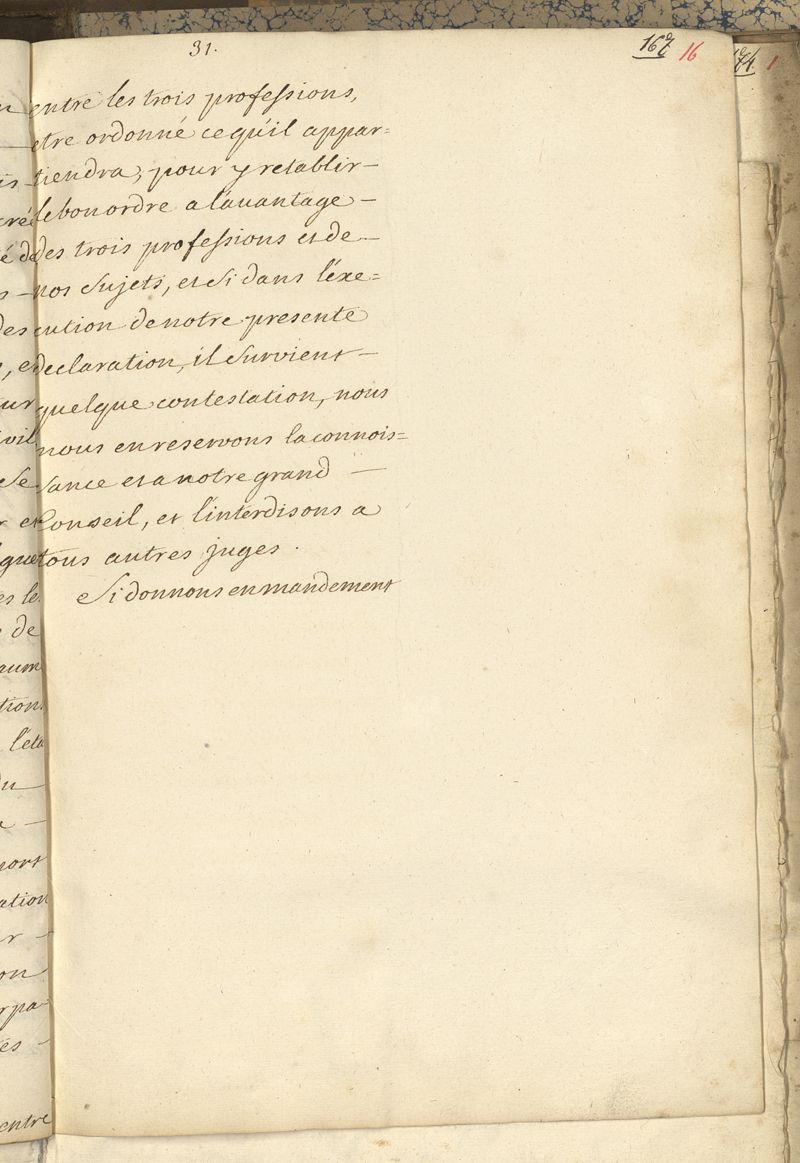 31.
167 16
entre les trois professions,
etre ordonné ce qu'il appar=
tiendra, pour y retablir
le bon ordre a l'auantage
des trois professions et de
nos Sujets, et Si dans l'exe=
cution de notre presente
declaration, il Survient
quelque contestation, nous
nous en reservons la connois=
sance et a notre grand
Conseil, et l'interdisons a
tous autres juges.
Si donnons en mandement